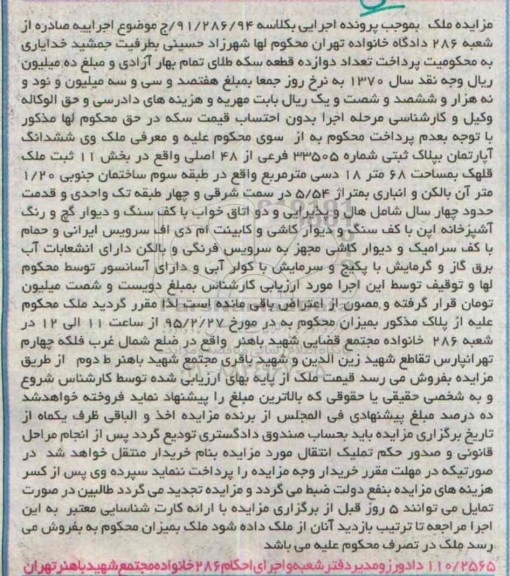 مزایده ملک بموجب پرونده اجرایی بکلاسه ۹۱/۲۸۶/۹۴/ج موضوع اجراییه صادره از
شعبه ۲۸۶ دادگاه خانواده تهران محکوم لها شهرزاد حسینی بطرفیت جمشید خدایاری
به محکومیت پرداخت تعداد دوازده قطعه سکه طلای تمام بهار آزادی و مبلغ ده میلیون
ریال وجه نقد سال ۱۳۷۰ به نرخ روز جمعا بمبلغ هفتصد و سی و سه میلیون و نود و
نه هزار و ششصد و شصت و یک ریال بابت مهریه و هزینه های دادرسی و حق الوکاله
وکیل و کارشناسی مرحله اجرا بدون احتساب قیمت سکه در حق محکوم لها مذکور
با توجه بعدم پرداخت محکوم به از سوی محکوم علیه و معرفی ملک وی ششدانگ
آپارتمان بپلاک ثبتی شماره ۳۳۵۰۵ فرعی از ۴۸ اصلی واقع در بخش ۱۱ ثبت ملک
قلهک بمساحت ۶۸ متر ۱۸ دسی مترمربع واقع در طبقه سوم ساختمان جنوبی ۱/۲۰
متر آن بالکن و انباری بمتراژ ۵/۵۴ در سمت شرقی و چهار طبقه تک واحدی و قدمت
حدود چهار سال شامل هال و پذیرایی و دو اتاق خواب با کف سنگ و دیوار گچ و رنگ
آشپزخانه اپن با کف سنگ و دیوار کاشی و کابینت ام دی اف سرویس ایرانی و حمام
با کف سرامیک و دیوار کاشی مجهز به سرویس فرنگی و بالکن دارای انشعابات آب
برق گاز و گرمایش با پکیج و سرمایش با کولر آبی و دارای آسانسور توسط محکوم
لها و توقیف توسط این اجرا مورد ارزیابی کارشناس بمبلغ دویست و شصت میلیون
تومان قرار گرفته و مصون از اعتراض باقی مانده است لذا مقرر گردید ملک محکوم
علیه از پلاک مذکور بمیزان محکوم به در مورخ ۹۵/۲/۲۷ از ساعت ۱۱ الی ۱۲ در
شعبه ۲۸۶ خانواده مجتمع قضایی شهید باهنر واقع در ضلع شمال غرب فلکه چهارم
تهرانپارس تقاطع شهید زین الدین و شهید باقری مجتمع شهید باهنر ط دوم از طریق
مزایده بفروش می رسد قیمت ملک از پایه بهای ارزیابی شده توسط کارشناس شروع
و به شخصی حقیقی یا حقوقی که بالاترین مبلغ را پیشنهاد نماید فروخته خواهدشد
ده درصد مبلغ پیشنهادی فی المجلس از برنده مزایده اخذ و الباقی ظرف یکماه از
تاریخ برگزاری مزایده باید بحساب صندوق دادگستری تودیع گردد پس از انجام مراحل
قانونی و صدور حکم تملیک انتقال مورد مزایده بنام خریدار منتقل خواهد شد در
صورتیکه در مهلت مقرر خریدار وجه مزایده را پرداخت ننماید سپرده وی پس از کسر
هزینه های مزایده بنفع دولت ضبط می گردد و مزایده تجدید می گردد طالبین در صورت
تمایل می توانند ۵ روز قبل از برگزاری مزایده با ارائه کارت شناسایی معتبر به این
اجرا مراجعه تا ترتیب بازدید آنان از ملک داده شود ملک بمیزان محکوم به بفروش می
رسد ملک در تصرف محکوم علیه می باشد
۱۱۰/۲۵۶۵ دادورز و مدیر دفتر شعبه و اجرای احکام ۲۸۶ خانواده مجتمع شهید باهنر تهران